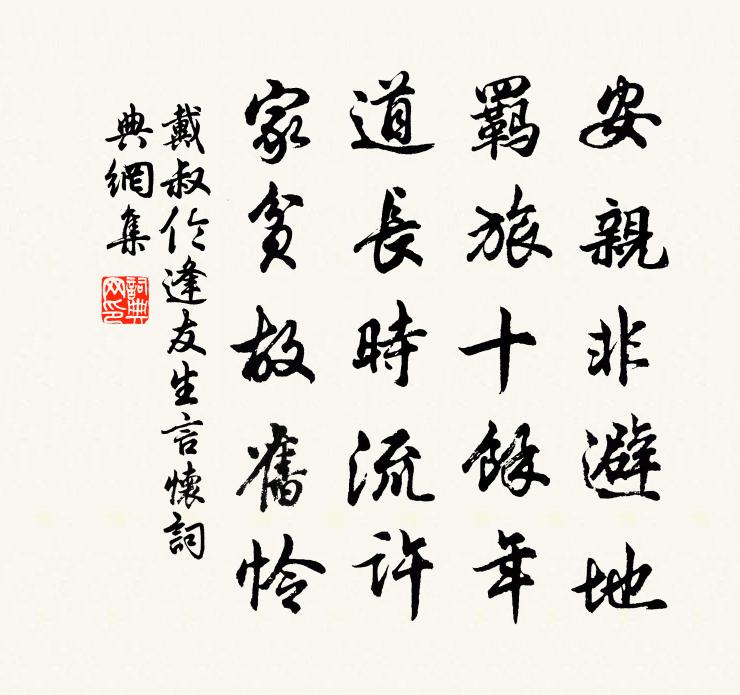 安親非避地
羈旅十餘年
道長時流許
家貧故舊怜
戴叔伦逢友生言懷詞
典網集
詞典
网印